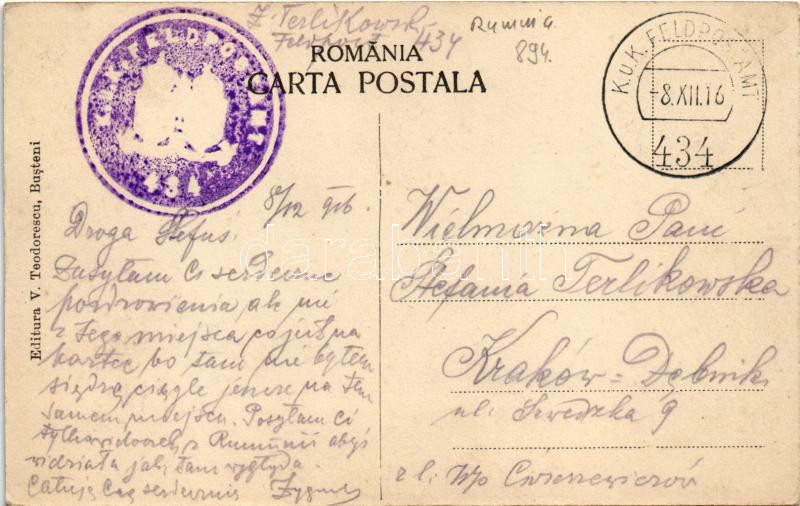 Z. Terlikowski
Feldpost 434
Rumunia
894.
ROMÂNIA
CARTA POSTALA
K.u.K. FELDPOSTAMT
434
K.u.K. FELDPOSTAMT
-8.XII.16
434
Editura V. Teodorescu, Bușteni
8/12 916.
Droga Stefuś!
Zasyłam Ci serdeczne
pozdrowienia ale nie
z tego miejsca co już na
kartce bo tam nie byłem
siedzę ciągle jeszcze na tem
samem miejscu. Posyłam Ci
tylko widoczek z Rumunii abyś
widziała jak tam wygląda.
Całuję Cię serdecznie Zygmunt
Wielmożna Pani
Stefania Terlikowska
Kraków = Dębniki
ul: Szwedzka 9
darabanth